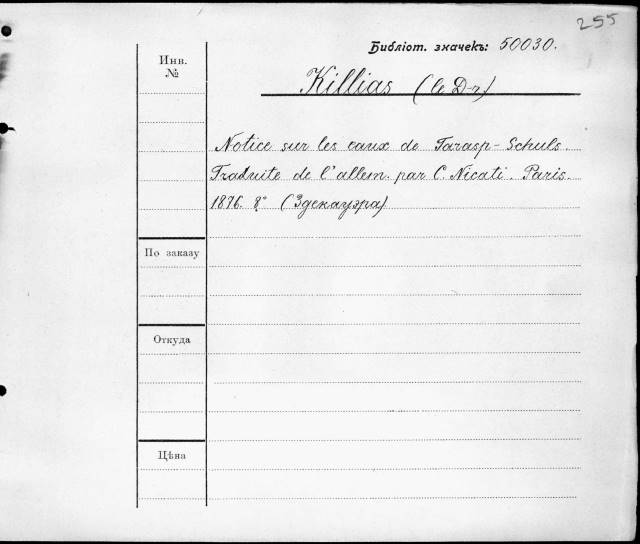 255
Библіот. значекъ: 50030.
Инв. №
Killias (le D-r)
Notice sur les eaux de Tarasp-Schuls.
Traduite de l'allem. par C. Nicati. Paris.
1876. 8° (Здекауэра)
По заказу
Откуда
Цѣна